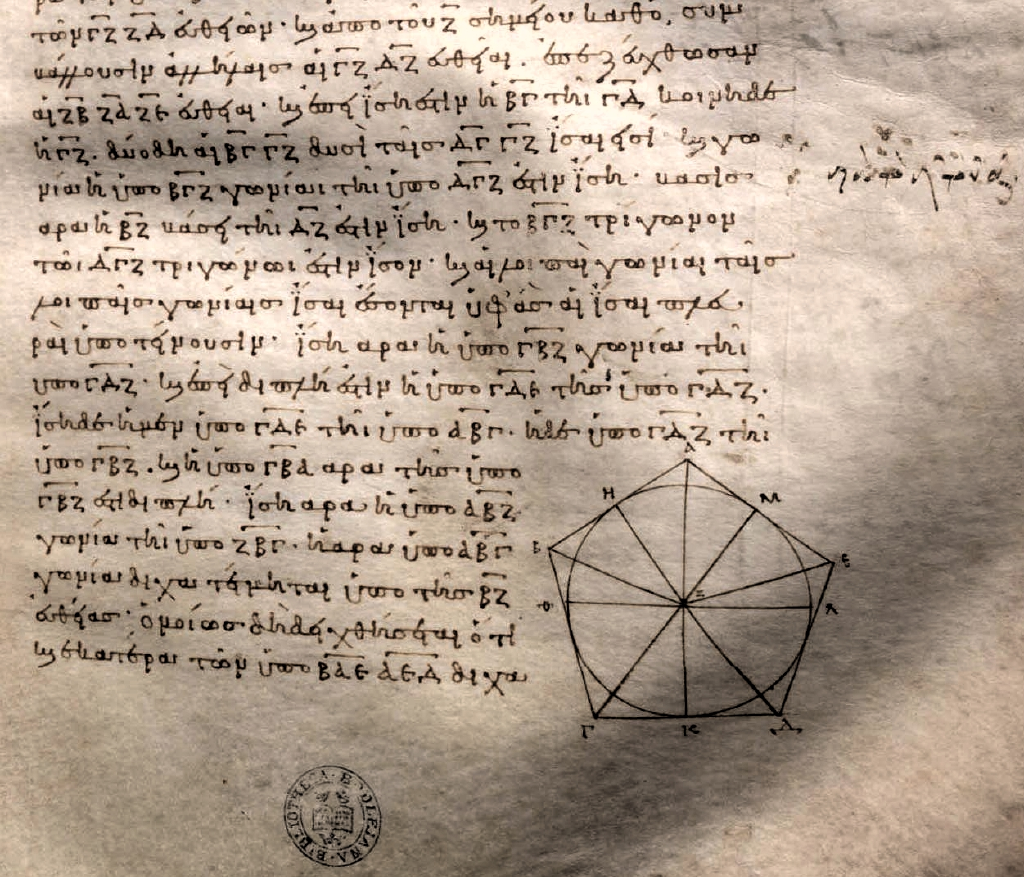 τῶν ΓΖ ΖΔ εὐθειῶν· καὶ ἀπὸ τοῦ Ζ σημείου καθὸ, συμ
βάλλουσιν ἀλλήλαις αἱ ΓΖ ΔΖ εὐθεῖαι. ἐπεζεύχθωσαν
αἱ ΖΒ ΖΑ ΖΕ εὐθεῖαι· καὶ ἐπεὶ ἴση ἐστὶν ἡ ΒΓ τῆι ΓΔ κοινὴ δὲ
ἡ ΓΖ. δύο δὴ αἱ ΒΓ ΓΖ δυσὶ ταῖς ΔΓ ΓΖ ἴσαι εἰσί καὶ γω
νία ἡ ὑπὸ ΒΓΖ γωνίαι τῆι ὑπὸ ΔΓΖ ἐστὶν ἴση· βάσις
ἄρα ἡ ΒΖ βάσει τῆι ΔΖ ἐστὶν ἴση· καὶ τὸ ΒΓΖ τρίγωνον
τῶι ΔΓΖ τριγώνωι ἐστὶν ἴσον· καὶ αἱ λοιπαὶ γωνίαι ταῖς
λοιπαῖς γωνίαις ἴσαι ἔσονται ὑφ' ἃς αἱ ἴσαι πλευ
ραὶ ὑποτείνουσιν· ἴση ἄρα ἡ ὑπὸ ΓΒΖ γωνία τῆι
ὑπὸ ΓΔΖ· καὶ ἐπεὶ διπλῆ ἐστὶν ἡ ὑπὸ ΓΔΕ τῆς ὑπὸ ΓΔΖ·
ἴση δὲ ἡ μὲν ὑπὸ ΓΔΕ τῆι ὑπὸ ΑΒΓ· ἡ δὲ ὑπὸ ΓΔΖ τῆι
ὑπὸ ΓΒΖ. καὶ ἡ ὑπὸ ΓΒΑ ἄρα τῆς ὑπὸ
ΓΒΖ ἐστὶ διπλῆ· ἴση ἄρα ἡ ὑπὸ ΑΒΖ
γωνία τῆι ὑπὸ ΖΒΓ· ἡ ἄρα ὑπὸ ΑΒΓ
γωνία δίχα τέτμηται ὑπὸ τῆς ΒΖ
εὐθείας· ὁμοίως δὴ δειχθήσεται ὅτι
καὶ ἑκατέρα τῶν ὑπὸ ΒΑΕ ΑΕΔ δίχα
Α
Η Μ
Β Ε
Ζ
Θ Λ
Γ Κ Δ
BIBLIOTHECA BODLEIANA